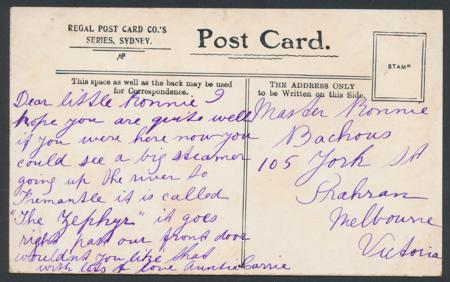 REGAL POST CARD CO.'S
SERIES, SYDNEY.
Post Card.
STAMP
This space as well as the back may be used
for Correspondence.
THE ADDRESS ONLY
to be Written on this Side.
Dear little Ronnie I
hope you are quite well
if you were here now you
could see a big steamer
going up the river to
Fremantle it is called
"The Zephyr" it goes
right past our front door
wouldn't you like that
with lots of love Auntie Carrie
Master Ronnie
Backous
105 York St
Prahran
Melbourne
Victoria